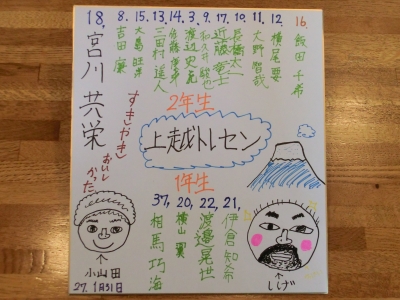 18, 8. 15. 13, 14. 3. 9. 17. 10. 11. 12, 16.
宮川 共栄
吉田 廉
大島 旺洋
三田村 遥人
佐藤 俊介
渡辺 史哉
和久井 駿也
近藤 幸士
長橋 太一
大野 智哉
横尾 要
飯田 千希
すきやき
おいしかった
2年生
上越トレセン
1年生
37, 20, 22, 21,
相馬 巧海
横山 翼
渡邉 晃世
伊倉 知希
小山田
27. 1月31日
しげ